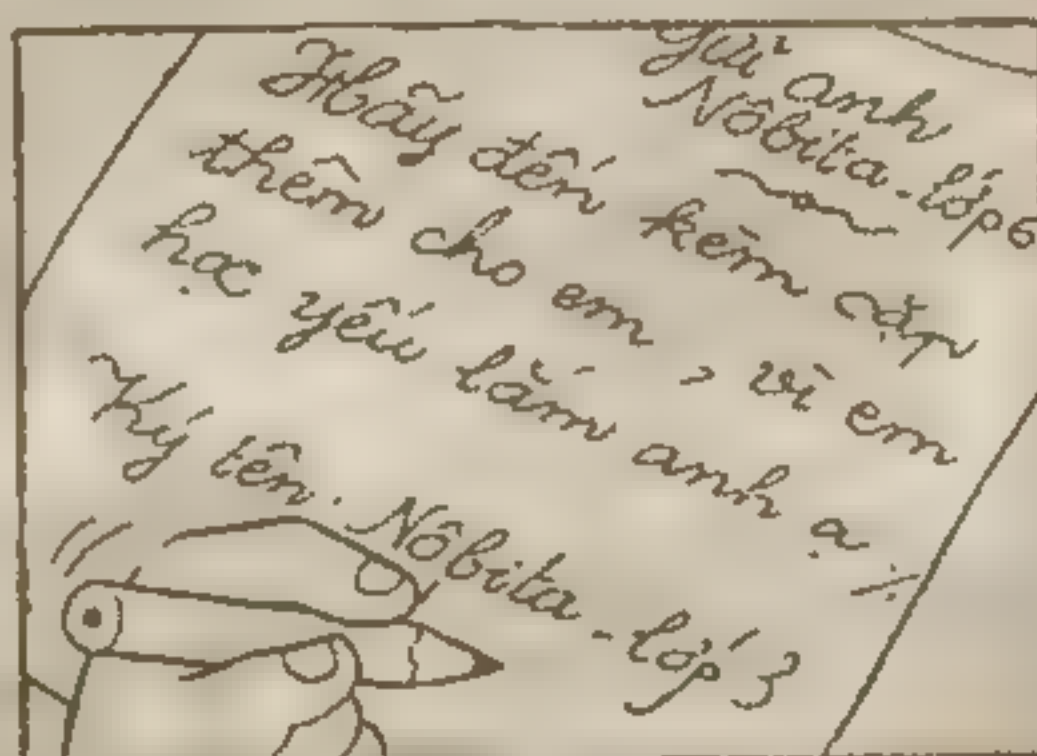 Gửi anh
Nôbita - lớp 6
Hãy đến kèm cặp
thêm cho em, vì em
học yếu lắm anh ạ ÷
Ký tên. Nôbita - lớp 3